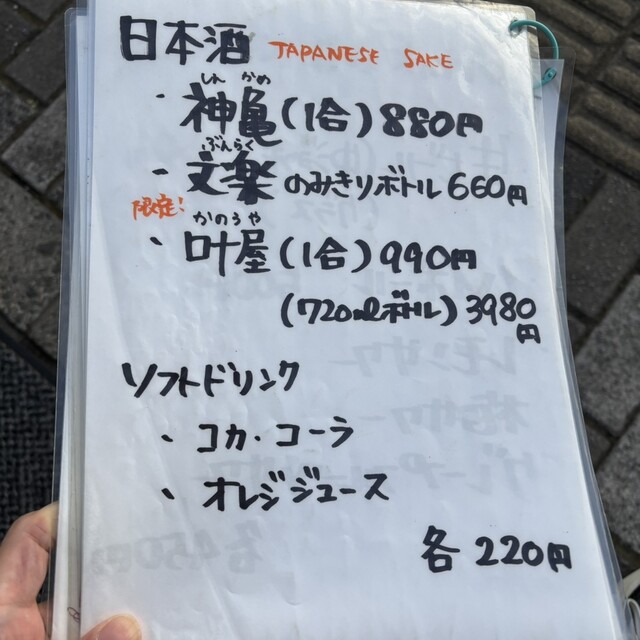 日本酒 JAPANESE SAKE
しん かめ
・神亀(1合)880円
ぶんらく
・文楽 のみきりボトル660円
限定!
かのうや
・叶屋(1合)990円
(720mlボトル)3980円
ソフトドリンク
・コカ・コーラ
・オレンジジュース
各220円
レモンサワー
梅サワー
各450円